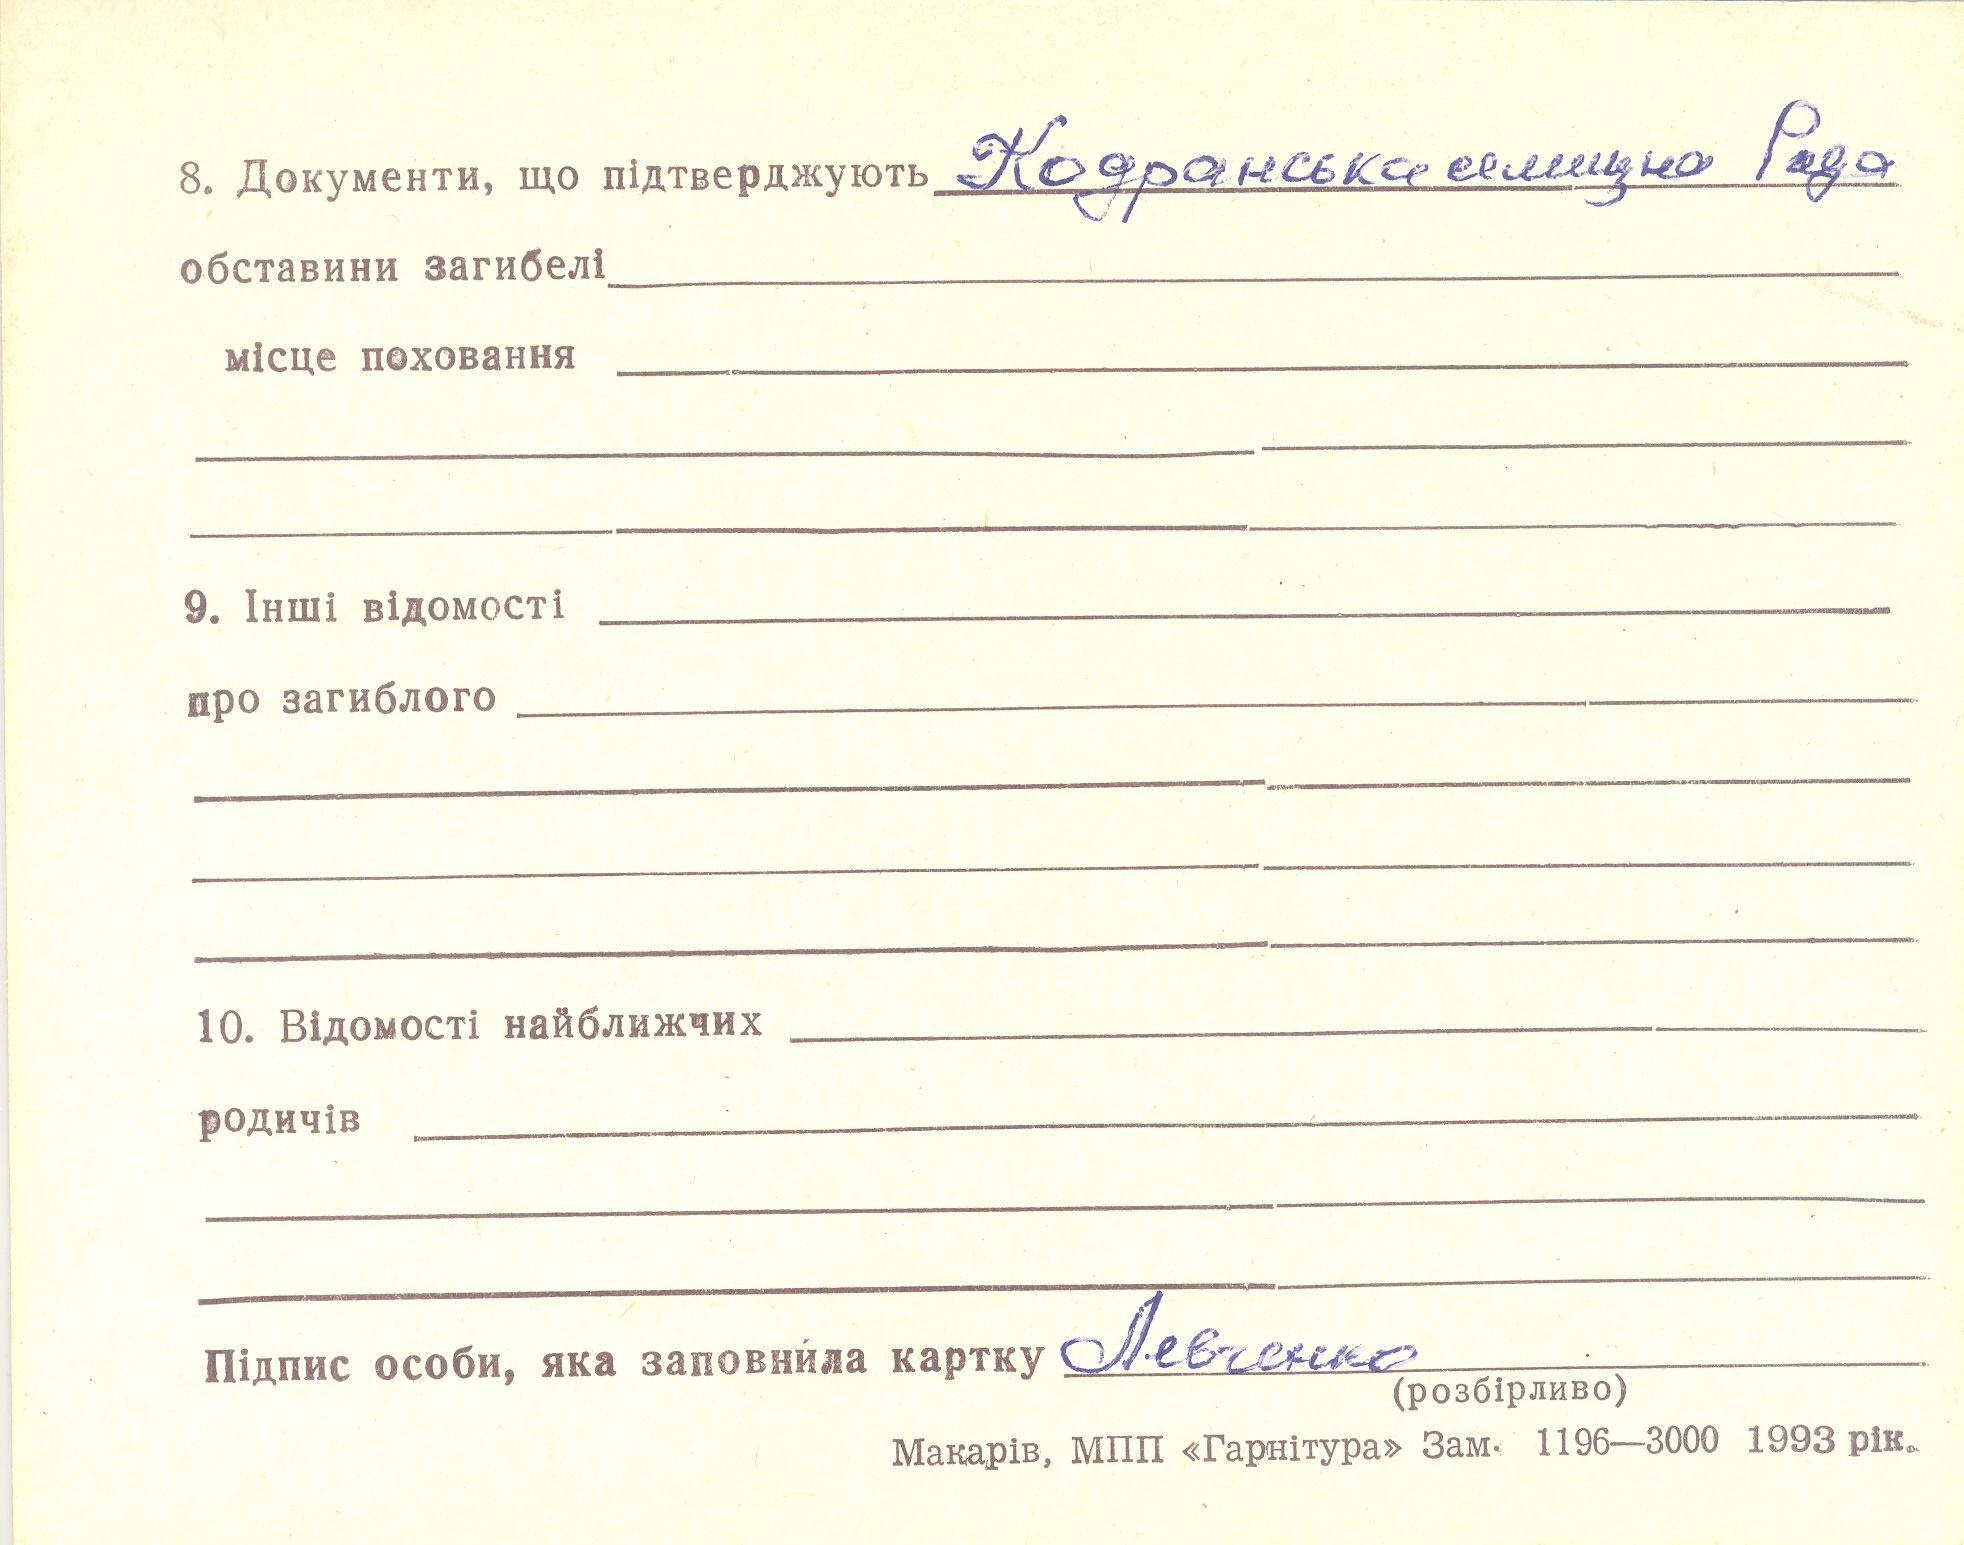 8. Документи, що підтверджують Кодранська селищна Рада
обставини загибелі
місце поховання
9. Інші відомості
про загиблого
10. Відомості найближчих
родичів
Підпис особи, яка заповнила картку Левченко
(розбірливо)
Макарів, МПП «Гарнітура» Зам. 1196—3000 1993 рік.